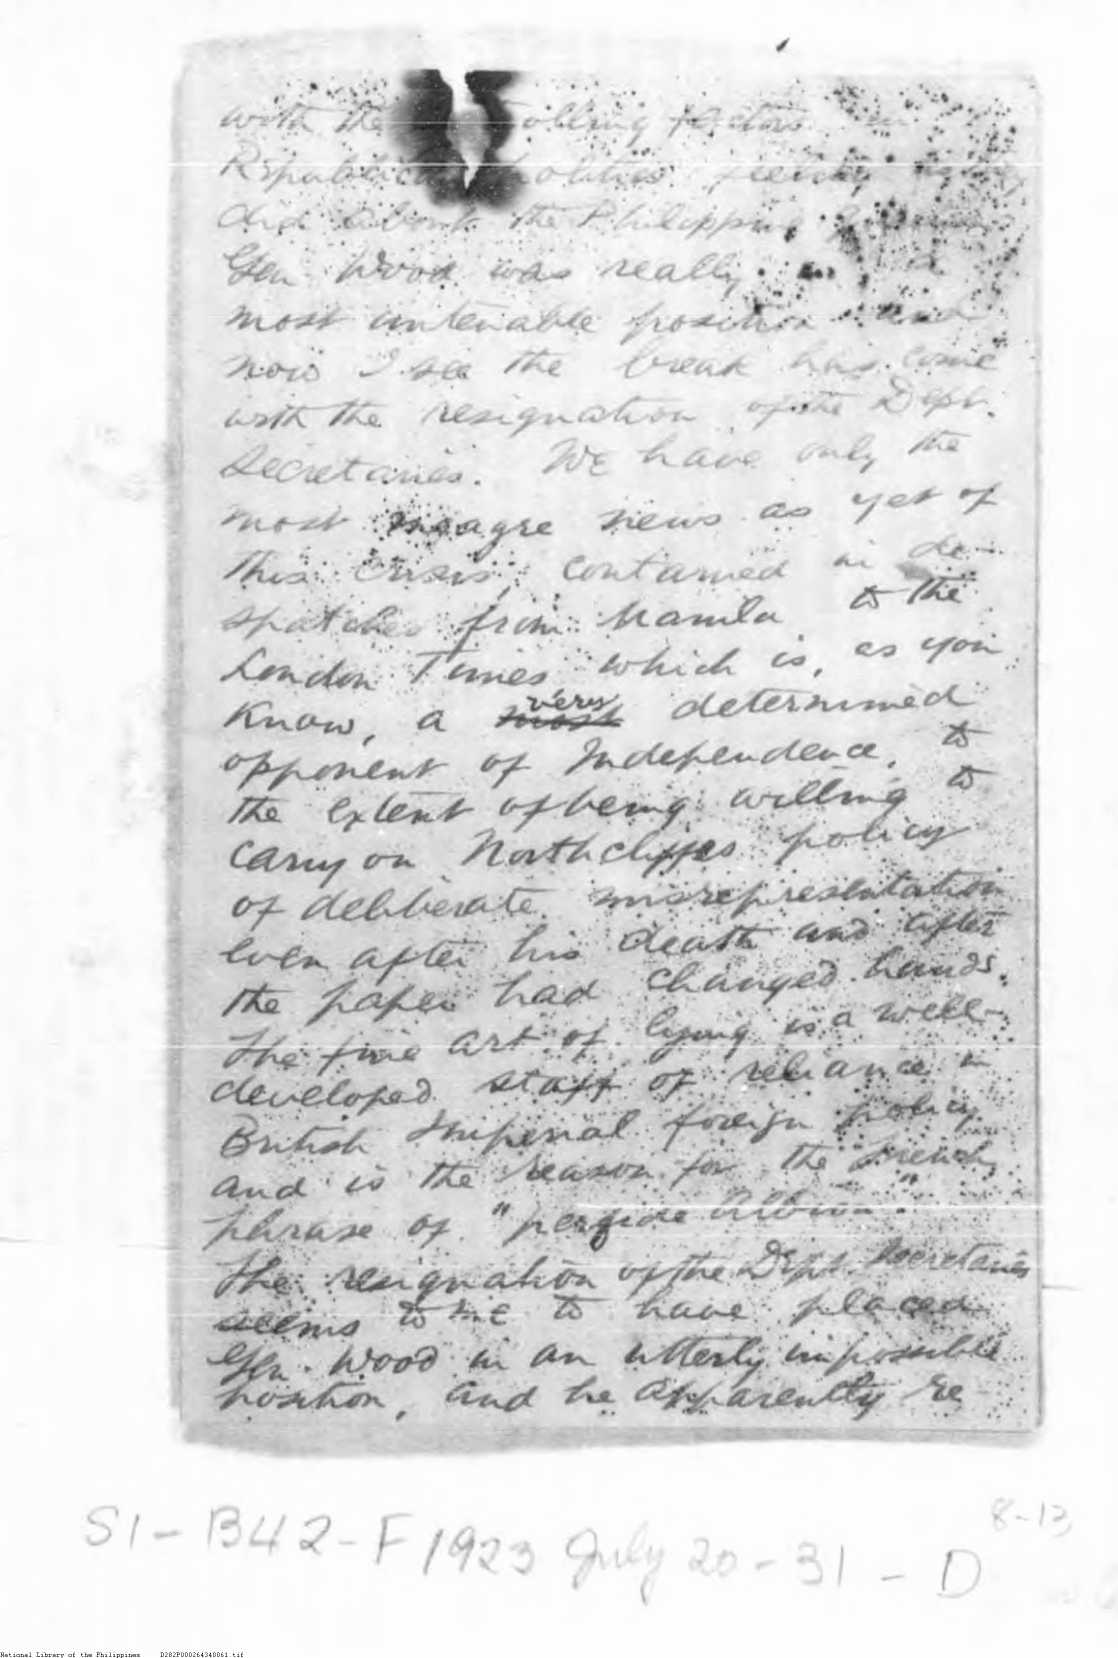 with the         olling factors in
Republican politics feeling as they
did about the Philippine
Gen Wood was really in a
most untenable position and
now I see the break has come
with the resignation of the Dept.
Secretaries. We have only the
most meagre news as yet of
this crisis, contained in de-
spatches from Manila to the
London Times which is, as you
know, a very determined
opponent of Independence, to
the extent of being willing to
carry on Northcliffes policy
of deliberate misrepresentation
even after his death and after
the paper had changed hands.
The fine art of lying is a well-
developed staff of reliance in
British Imperial foreign policy
and is the reason for the French
phrase of "perfide Albion".
The resignation of the Dept. Secretaries
seems to me to have placed
Gen. Wood in an utterly impossible
position, and he apparently re
8-13
S1-B42-F1923 July 20-31-D
National Library of the Philippines D282P000264340061.tif